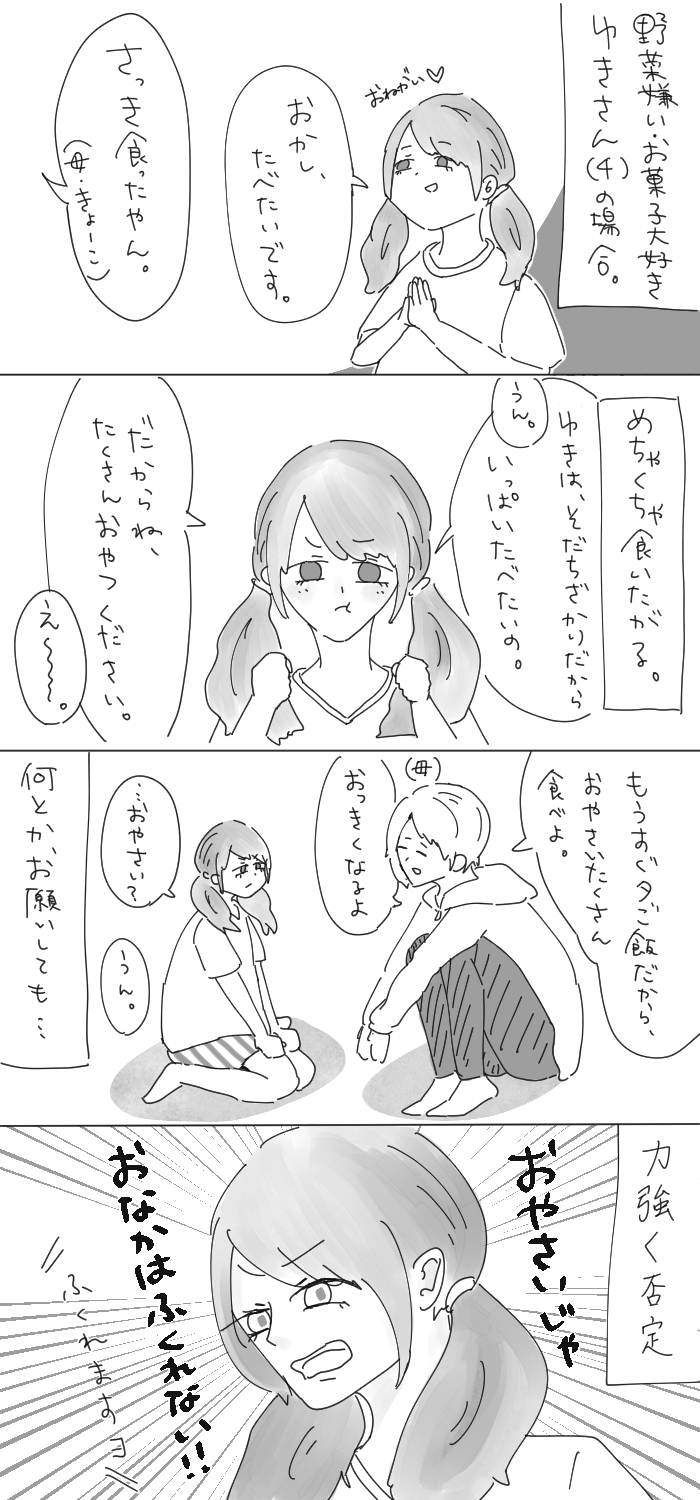 野菜嫌い・お菓子大好き
ゆきさん(4)の場合。
おねがい♡
おかし、
たべたいです。
さっき食ったやん。
(母・きょーこ)
めちゃくちゃ食いたがる。
うん。
ゆきは、そだちざかりだから
いっぱいたべたいの。
だからね、
たくさんおやつください。
え〜〜〜。
もうすぐ夕ご飯だから、
おやさいたくさん
食べよ。
(母)
おっきくなるよ
…おやさい?
うん。
何とか、お願いしても…
力強く否定
おやさいじゃ
おなかはふくれない!!
ふくれますヨ